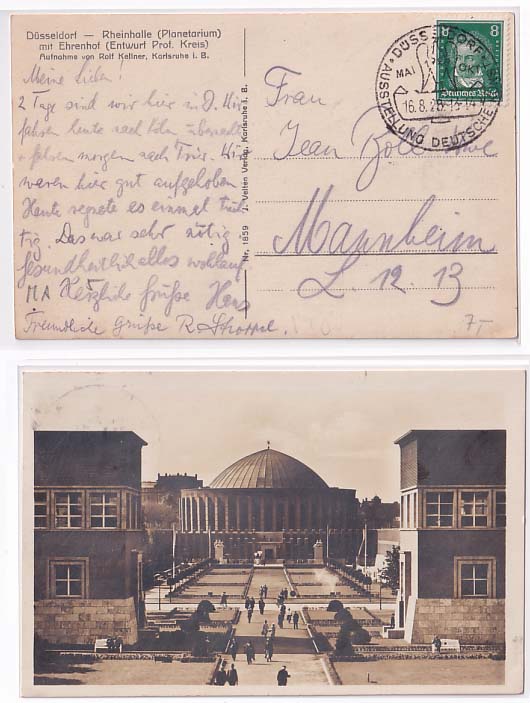 Düsseldorf — Rheinhalle (Planetarium)
mit Ehrenhof (Entwurf Prof. Kreis)
Aufnahme von Rolf Kellner, Karlsruhe i. B.
Meine Lieben!
2 Tage sind wir hier in D. Wir
fahren heute nach Köln
+ fahren morgen nach Trier. Wir
waren hier gut aufgehoben
Heute regnete es einmal tüch
tig. Das war sehr nötig
gesundheitlich alles wohlauf
Herzliche Grüße Hans
Freundliche Grüße R.
Nr. 1859 J. Velten Verlag, Karlsruhe i. B.
Frau
Jean
Mannheim
L. 12. 13
7,-
8 8
Deutsches Reich
DÜSSELDORF
MAI
16.8.26
AUSSTELLUNG DEUTSCHE